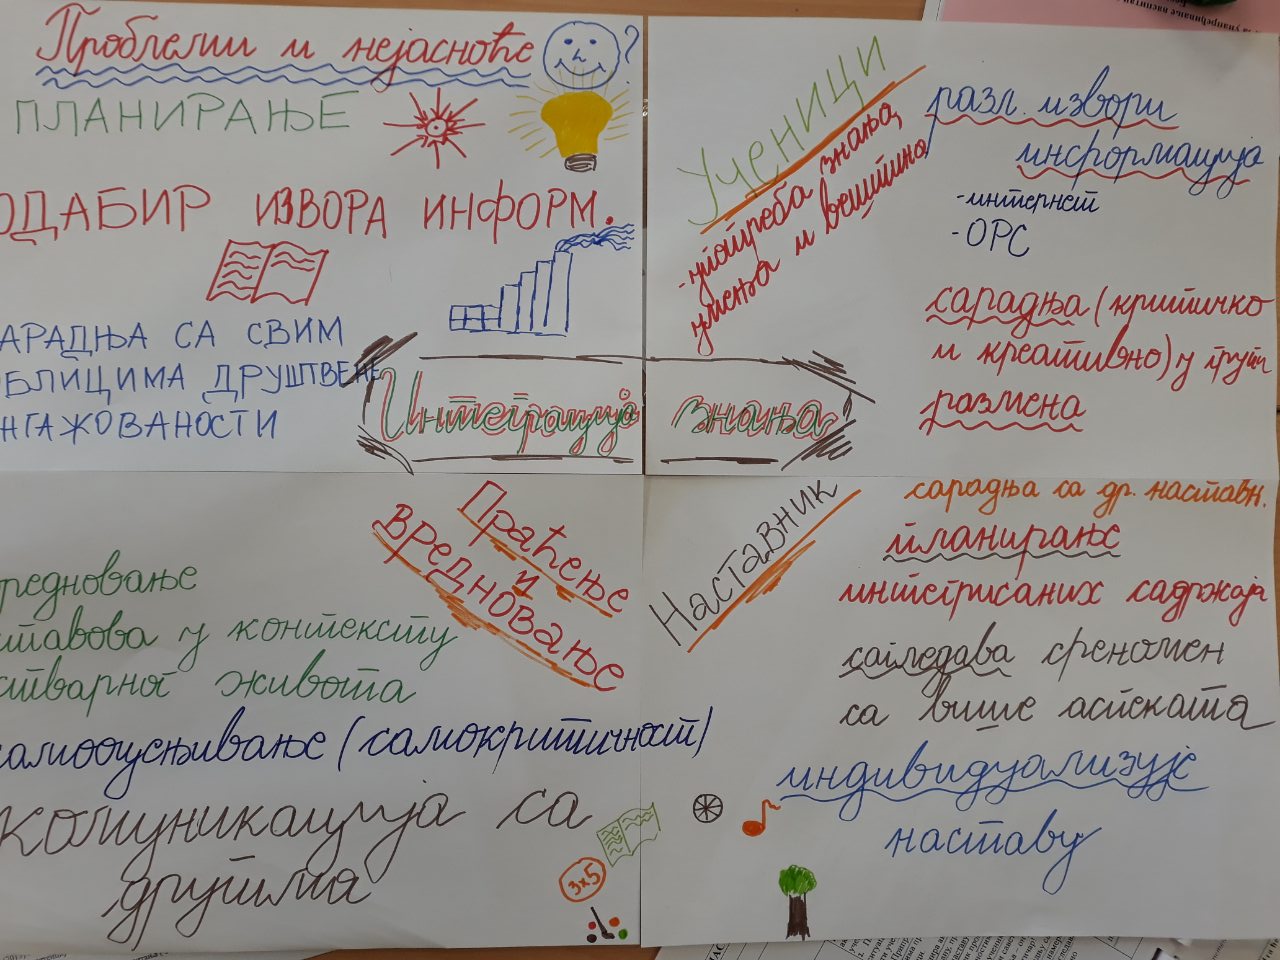 Проблеми и нејасноће ?
ПЛАНИРАЊЕ
ОДАБИР ИЗВОРА ИНФОРМ.
АРАДЊА СА СВИМ
БЛИЦИМА ДРУШТВЕНЕ
НГАЖОВАНОСТИ
Ученици
-употреба знања,
умења и вештина
разл. извори
информација
-интернет
-ОРС
сарадња (критичко
и креативно) у групи
размена
Интеграција знања
Праћење
и
вредновање
редновање
ставова у контексту
стварног живота
самооцењивање (самокритичност)
комуникација са
другима
3x5
Наставник
сарадња са др. наставн.
планирање
интегрисаних садржаја
сагледава феномен
са више аспеката
индивидуализује
наставу